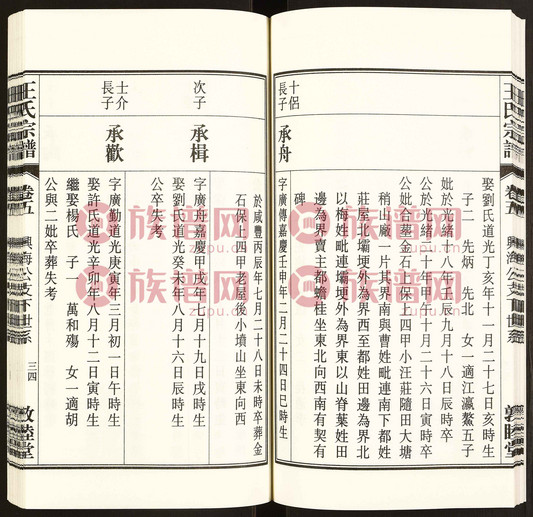 王氏宗譜
卷五
興海公支下世系
敦睦堂
娶劉氏道光丁亥年十一月二十七日亥時生
子二 先炳 先北 女一適江瀛鰲五子
妣於光緒十八年壬辰九月十八日辰時卒
公於光緒二十年甲午十月二十六日寅時卒
公妣合葬金石上保上四甲小汪莊隨田大塘
稍山廠一片其界南與曹姓毗連南下都姓
莊屋北壩埂外為界西至都姓田邊為界北
以梅姓毗連壩埂外為界東以山脊葉姓田
邊為界賣主都蟾桂坐東北向西南有契有
碑
十侶長子
承舟
字廣傳嘉慶壬申年二月二十四日巳時生
於咸豐丙辰年七月二十八日未時卒葬金
石保上四甲老屋後小墳山坐東向西
次子
承楫
字廣舟嘉慶甲戌年七月十九日戌時生
娶劉氏道光癸未年八月十六日辰時生
公卒失考
士介長子
承歡
字廣勤道光庚寅年三月初一日午時生
娶許氏道光辛卯年八月十二日寅時生
繼娶楊氏 子一 萬和殤 女一適胡
公與二妣卒葬失考
王氏宗譜
卷五
興海公支下世系
三四
敦睦堂
族譜网
zupu.cn
族譜网
zupu.cn
族譜网
zupu.cn
族譜网
zupu.cn